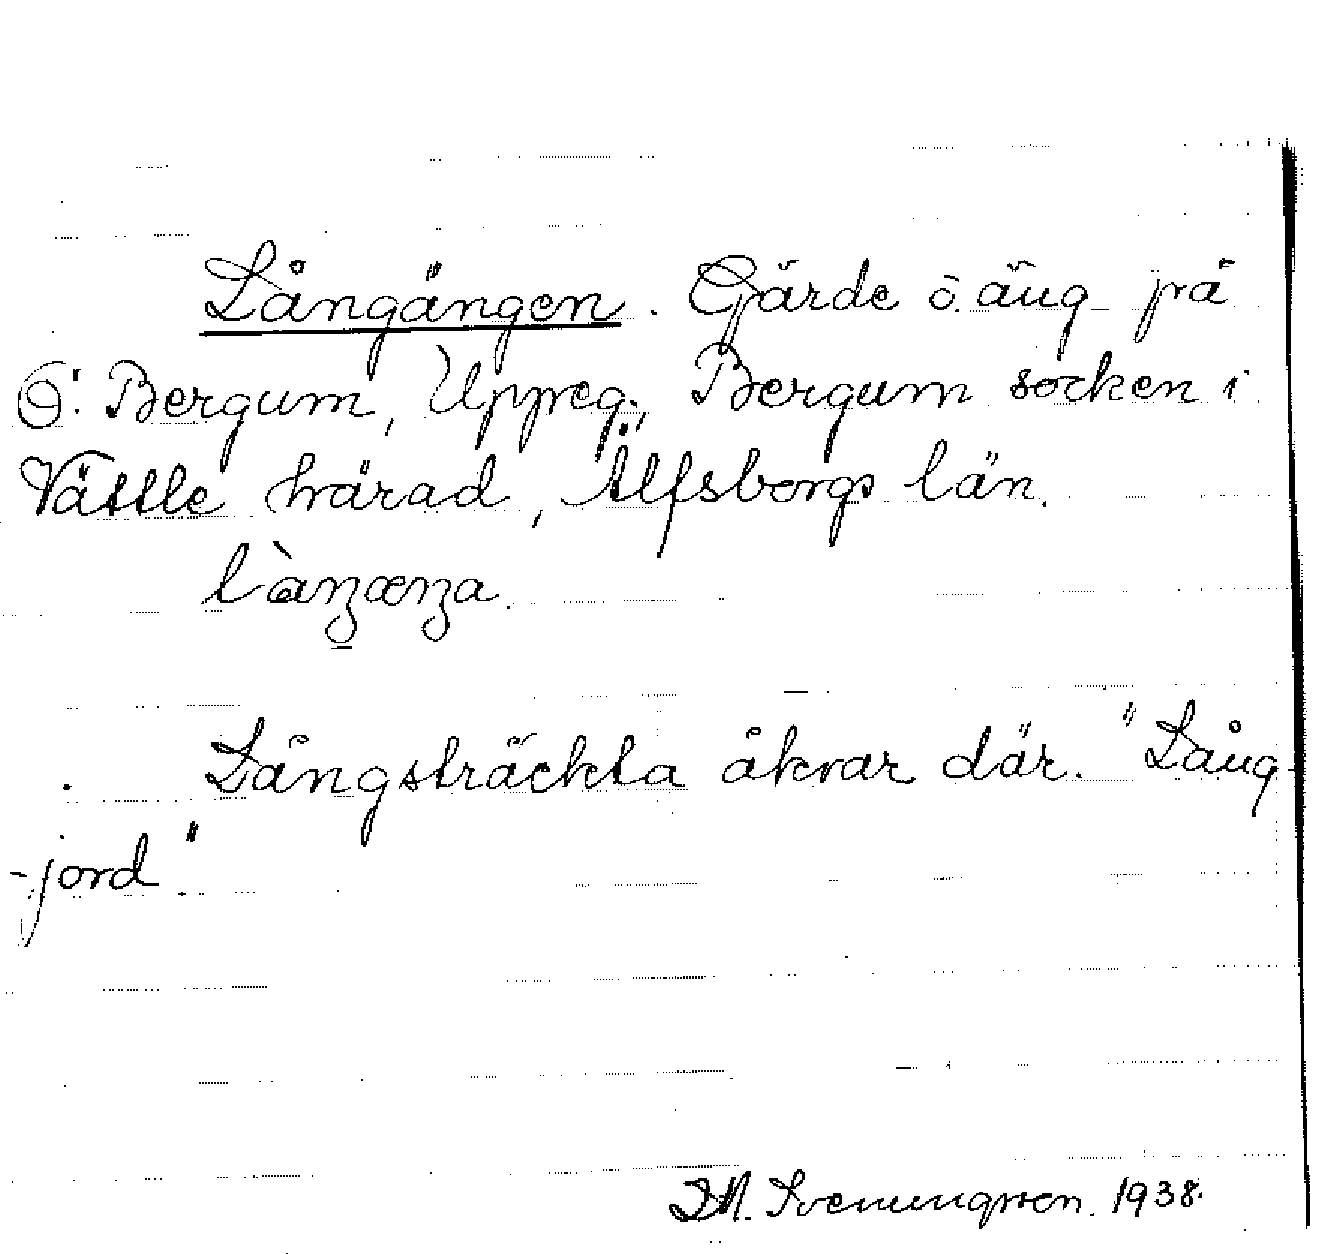 Långängen. Gärde o. äng på
Ö. Bergum, Uppeg., Bergum socken i
Vättle härad, Älfsborgs län.
Långsträckta åkrar där. "Lång-
-jord".
Svenungsson. 1938.